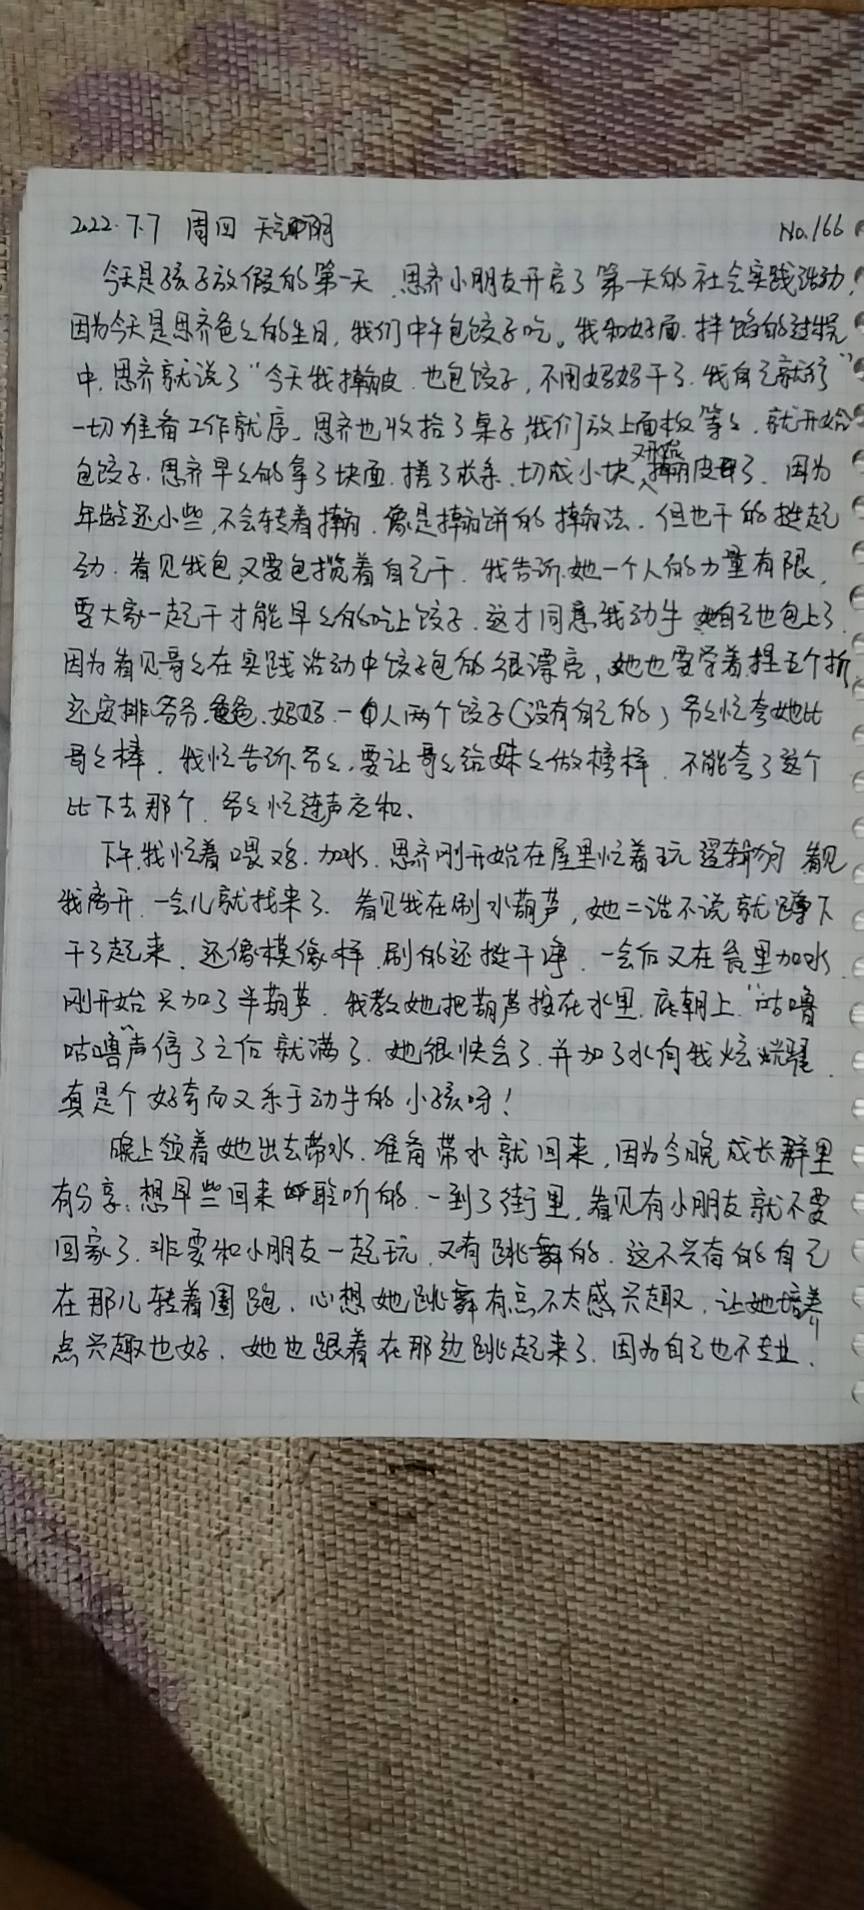 2022.7.7 周四 天气晴 No.166
今天是孩子放假的第一天,思齐小朋友开启了第一天的社会实践活动,
因为今天是思齐爸爸的生日,我们中午包饺子吃。我和好面.拌馅的过程
中,思齐就说了"今天我擀皮.也包饺子,不用妈妈干了.我自己就行"
一切准备工作就序,思齐也收拾了桌子,我们放上面板等等.就开始
包饺子.思齐早早的拿了块面.搓了长条.切成小块,又开始擀皮了.因为
年龄还小些,不会转着擀.像是擀饼的擀法.但也干的挺起
劲.看见我包,又要包揽着自己干.我告诉她一个人的力量有限,
要大家一起干才能早早的吃上饺子.这才同意我动手 她自己也包上了.
因为看见哥哥在实践活动中饺子包的很漂亮,她也要学着捏五个折
还安排爷爷.爸爸.妈妈.一人两个饺子(没有自己的)爷爷忙夸她比
哥哥棒.我忙告诉爷爷,要让哥哥给妹妹做榜样.不能夸了这个
比下去那个.爷爷忙连声应和.
下午,我忙着喂鸡.加水.思齐刚开始在屋里忙着玩逻辑狗 看见
我离开.一会儿就找来了.看见我在刷水葫芦,她二话不说就蹲下
干了起来.还像模像样.刷的还挺干净.一会后又在瓮里加水.
刚开始只加了半葫芦.我教她把葫芦按在水里.底朝上."咕噜
咕噜"声停了之后就满了.她很快会了.并加了水向我炫耀.
真是个好奇而又乐于动手的小孩呀!
晚上领着她出去带水.准备带水就回来,因为今晚成长群里
有分享,想早些回来聆听的.一到了街里,看见有小朋友就不要
回家了.非要和小朋友一起玩.又有跳舞的.这不兴奋的自己
在那儿转着圈跑.心想她跳舞有点不太感兴趣.让她培养
点兴趣也好.她也跟着在那边跳起来了.因为自己也不专业.